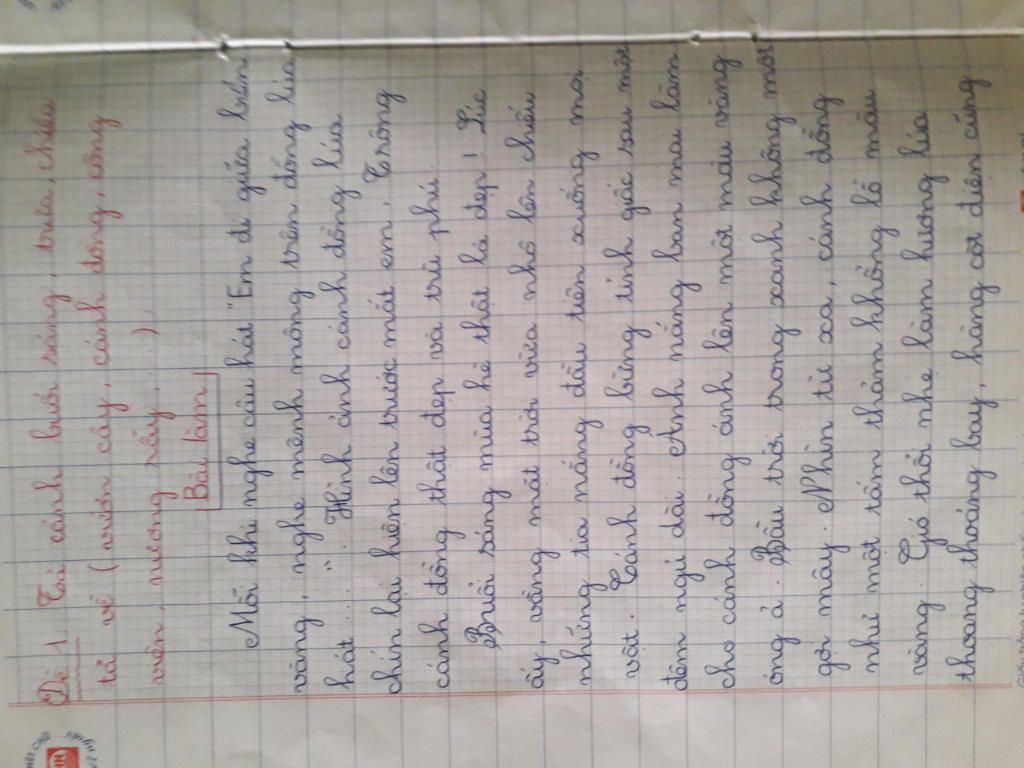 Đề 1. Tả cảnh buổi sáng, trưa, chiều
tả về (vườn cây, cánh đồng, công
viên, nương rẫy, ...).
Bài làm
Mỗi khi nghe câu hát "Em đi giữa biển
vàng, nghe mênh mông trên đồng lúa
hát ... ". Hình ảnh cánh đồng lúa
chín lại hiện lên trước mắt em. Trông
cánh đồng thật đẹp và trù phú.
Buổi sáng mùa hè thật là đẹp! Lúc
ấy, vầng mặt trời vừa nhô lên chiếu
những tia nắng đầu tiên xuống mọi
vật. Cánh đồng bừng tỉnh giấc sau một
đêm ngủ dài. Ánh nắng ban mai làm
cho cánh đồng ánh lên một màu vàng
óng ả. Bầu trời trong xanh không một
gợi mây. Nhìn từ xa, cánh đồng
như một tấm thảm khổng lồ màu
vàng. Gió thổi nhẹ làm hương lúa
thoang thoảng bay, hàng cột điện cũng